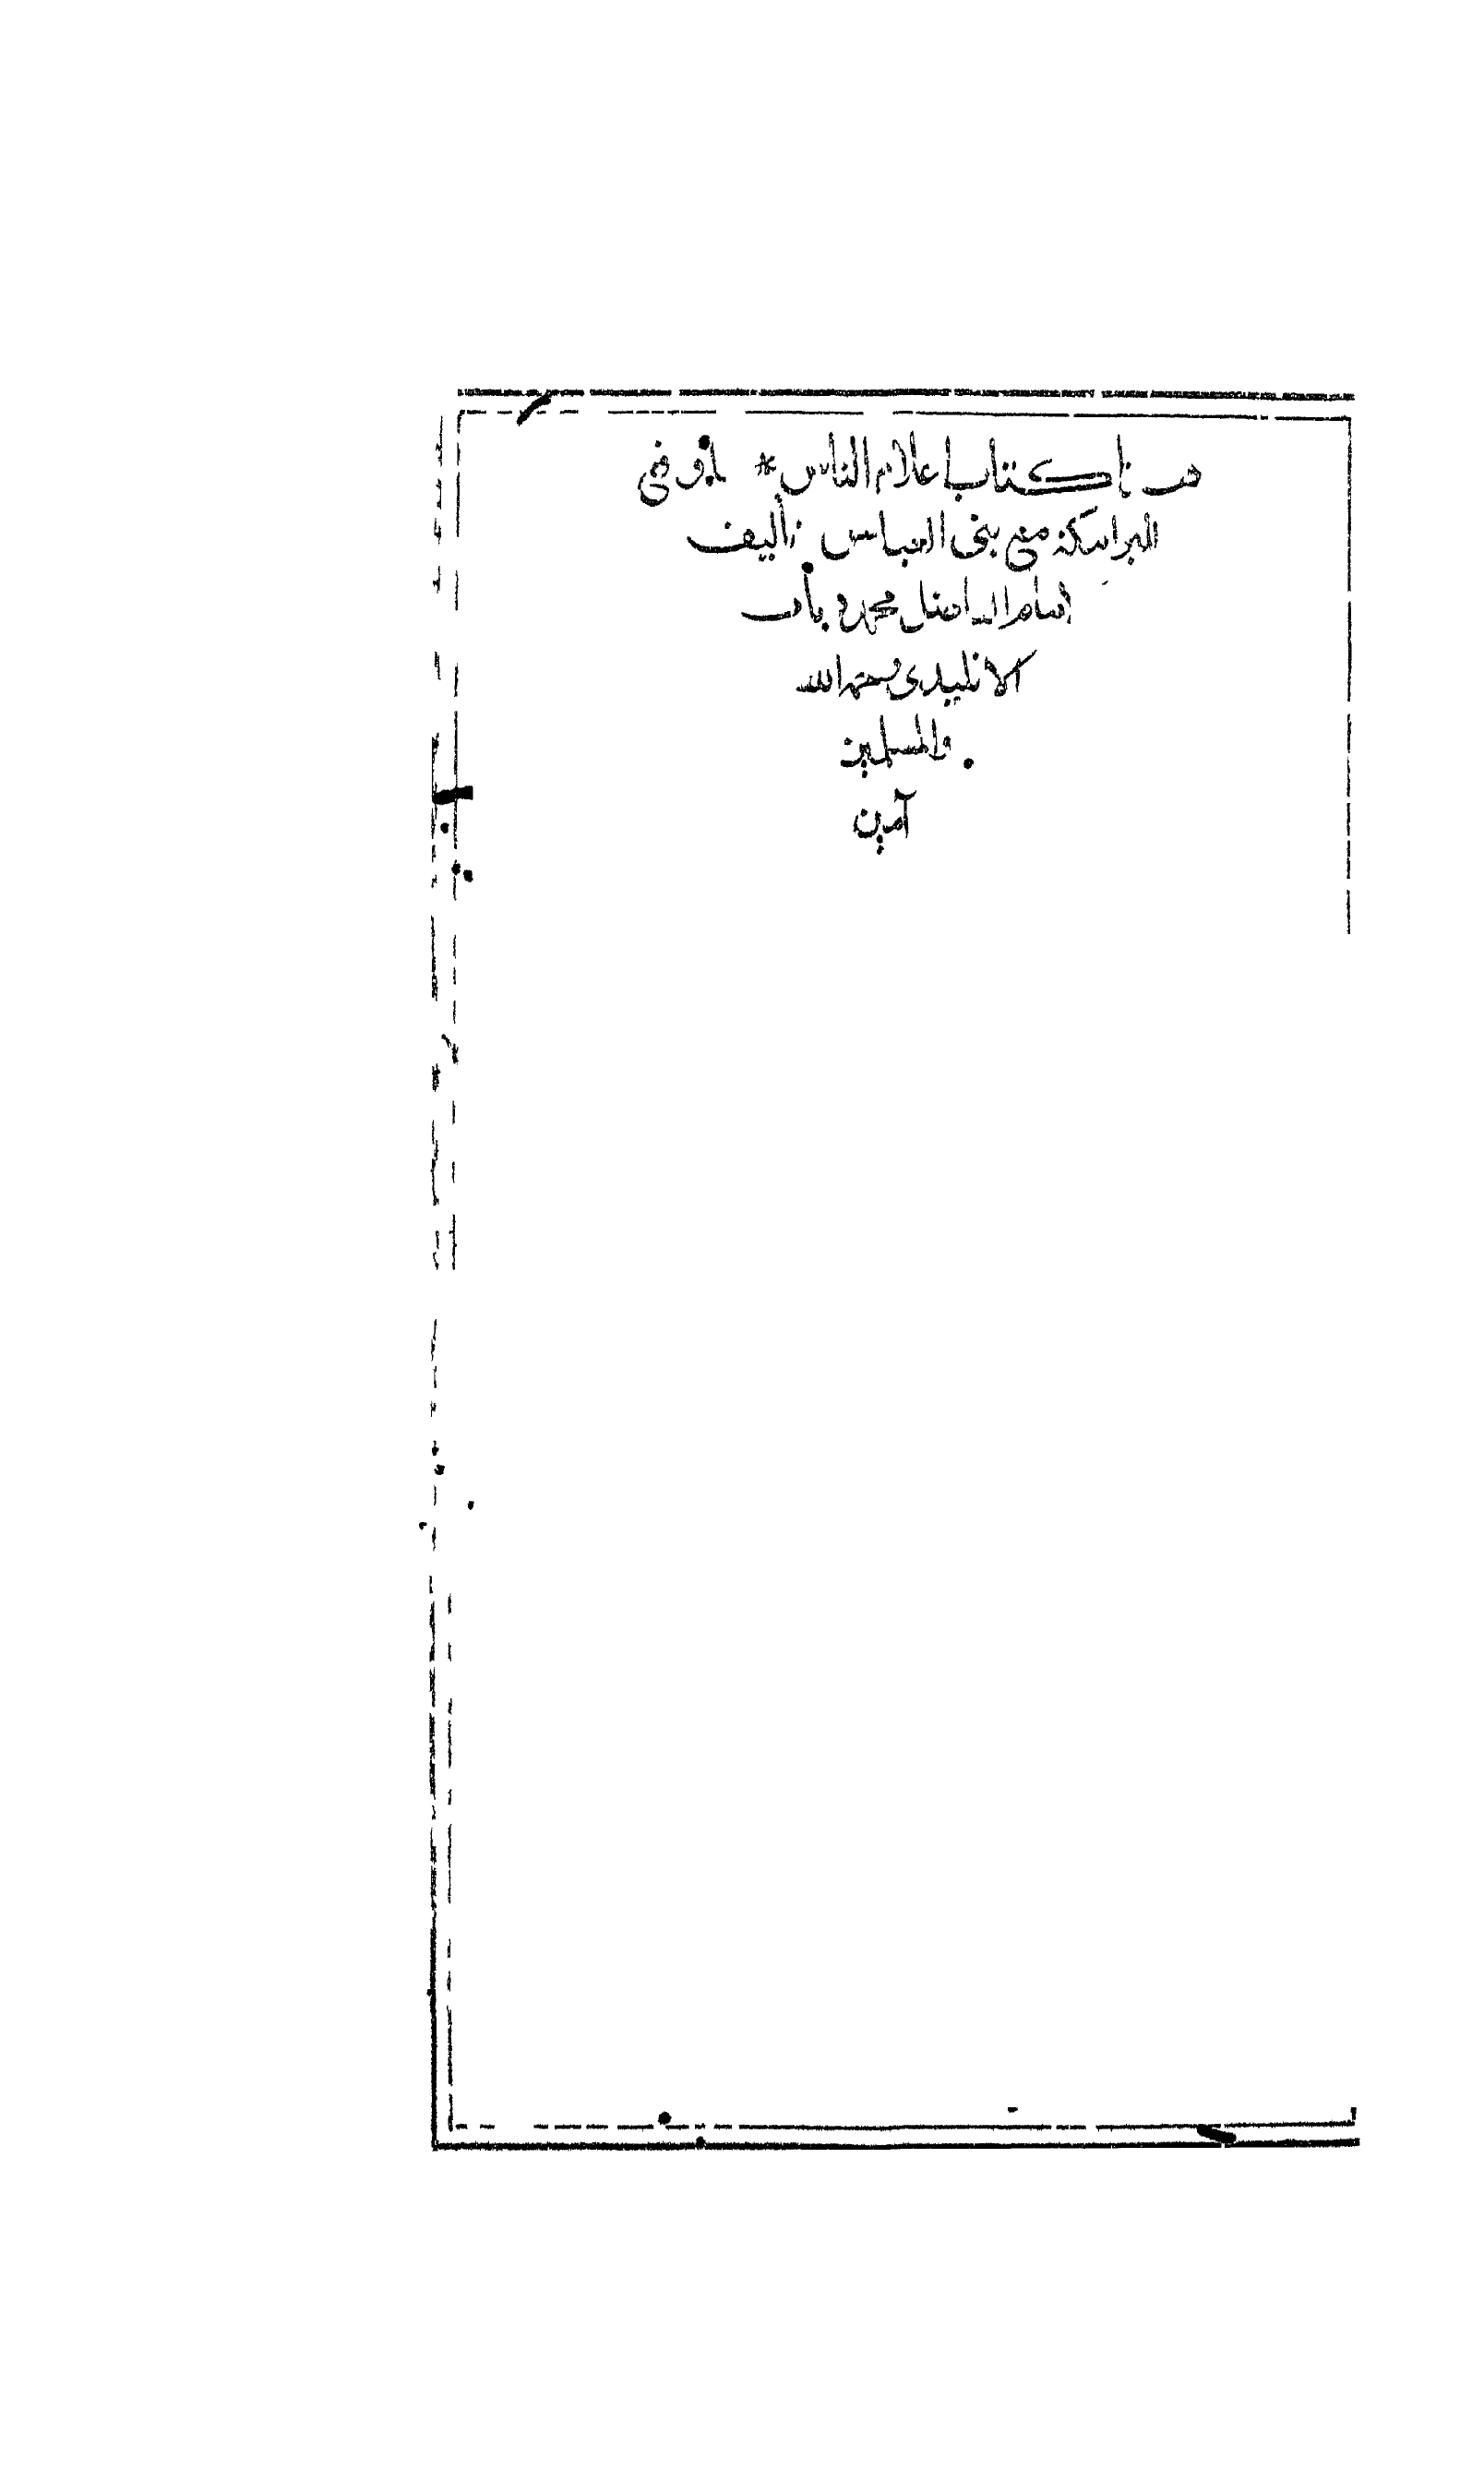 هذا كتاب اعلام الناس * بما وقع
للبرامكة مع بنى العباس تأليف
الفاضل محمد دياب
الاتليدى رحمه الله
والمسلمين
آمين